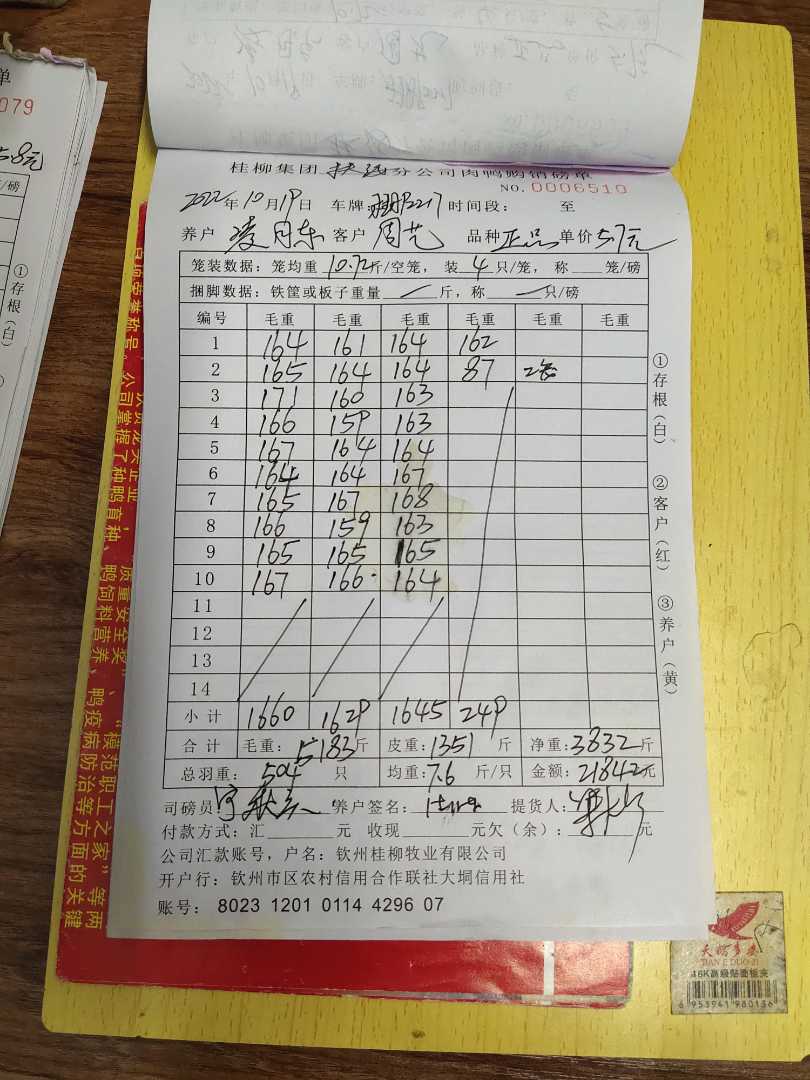 单
079
5.8元
/磅
①存根(白)
桂柳集团 分公司肉鸭购销磅单
NO.0006510
2022年10月19日 车牌: 2217 时间段: 至
养户 凌月东 客户 周艺 品种 正品 单价 5.7元
笼装数据:笼均重 10.72 斤/空笼,装 4 只/笼,称 笼/磅
捆脚数据:铁筐或板子重量 斤,称 只/磅
编号 毛重 毛重 毛重 毛重 毛重 毛重
1 164 161 164 162
2 165 164 164 87 2笼
3 171 160 163
4 166 159 163
5 167 164 164
6 164 164 167
7 165 167 168
8 166 159 163
9 165 165 165
10 167 166 164
11
12
13
14
小计 1660 1629 1645 249
合计 毛重:5183斤 皮重:1351斤 净重:3832斤
总羽重:504只 均重:7.6斤/只 金额:21842元
司磅员 养户签名: 提货人:
付款方式:汇 元 收现 元欠(余): 元
公司汇款账号,户名:钦州桂柳牧业有限公司
开户行:钦州市区农村信用合作联社大垌信用社
账号: 8023 1201 0114 4296 07
①存根(白)
②客户(红)
③养户(黄)
公司掌握了种鸭育种、鸭饲料营养、鸭疫病防治等方面的关键
质量安全奖
“模范职工之家”等两
TIAN E DUO JI
16K高级贴面板夹
6 953941 980136